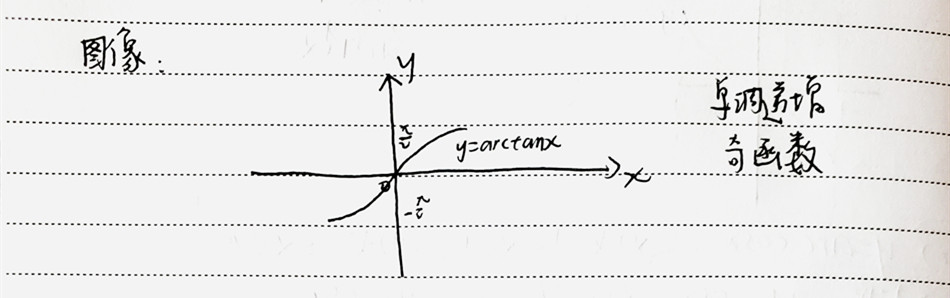 图像:
y
π/2
y=arctanx
x
0
-π/2
单调递增
奇函数